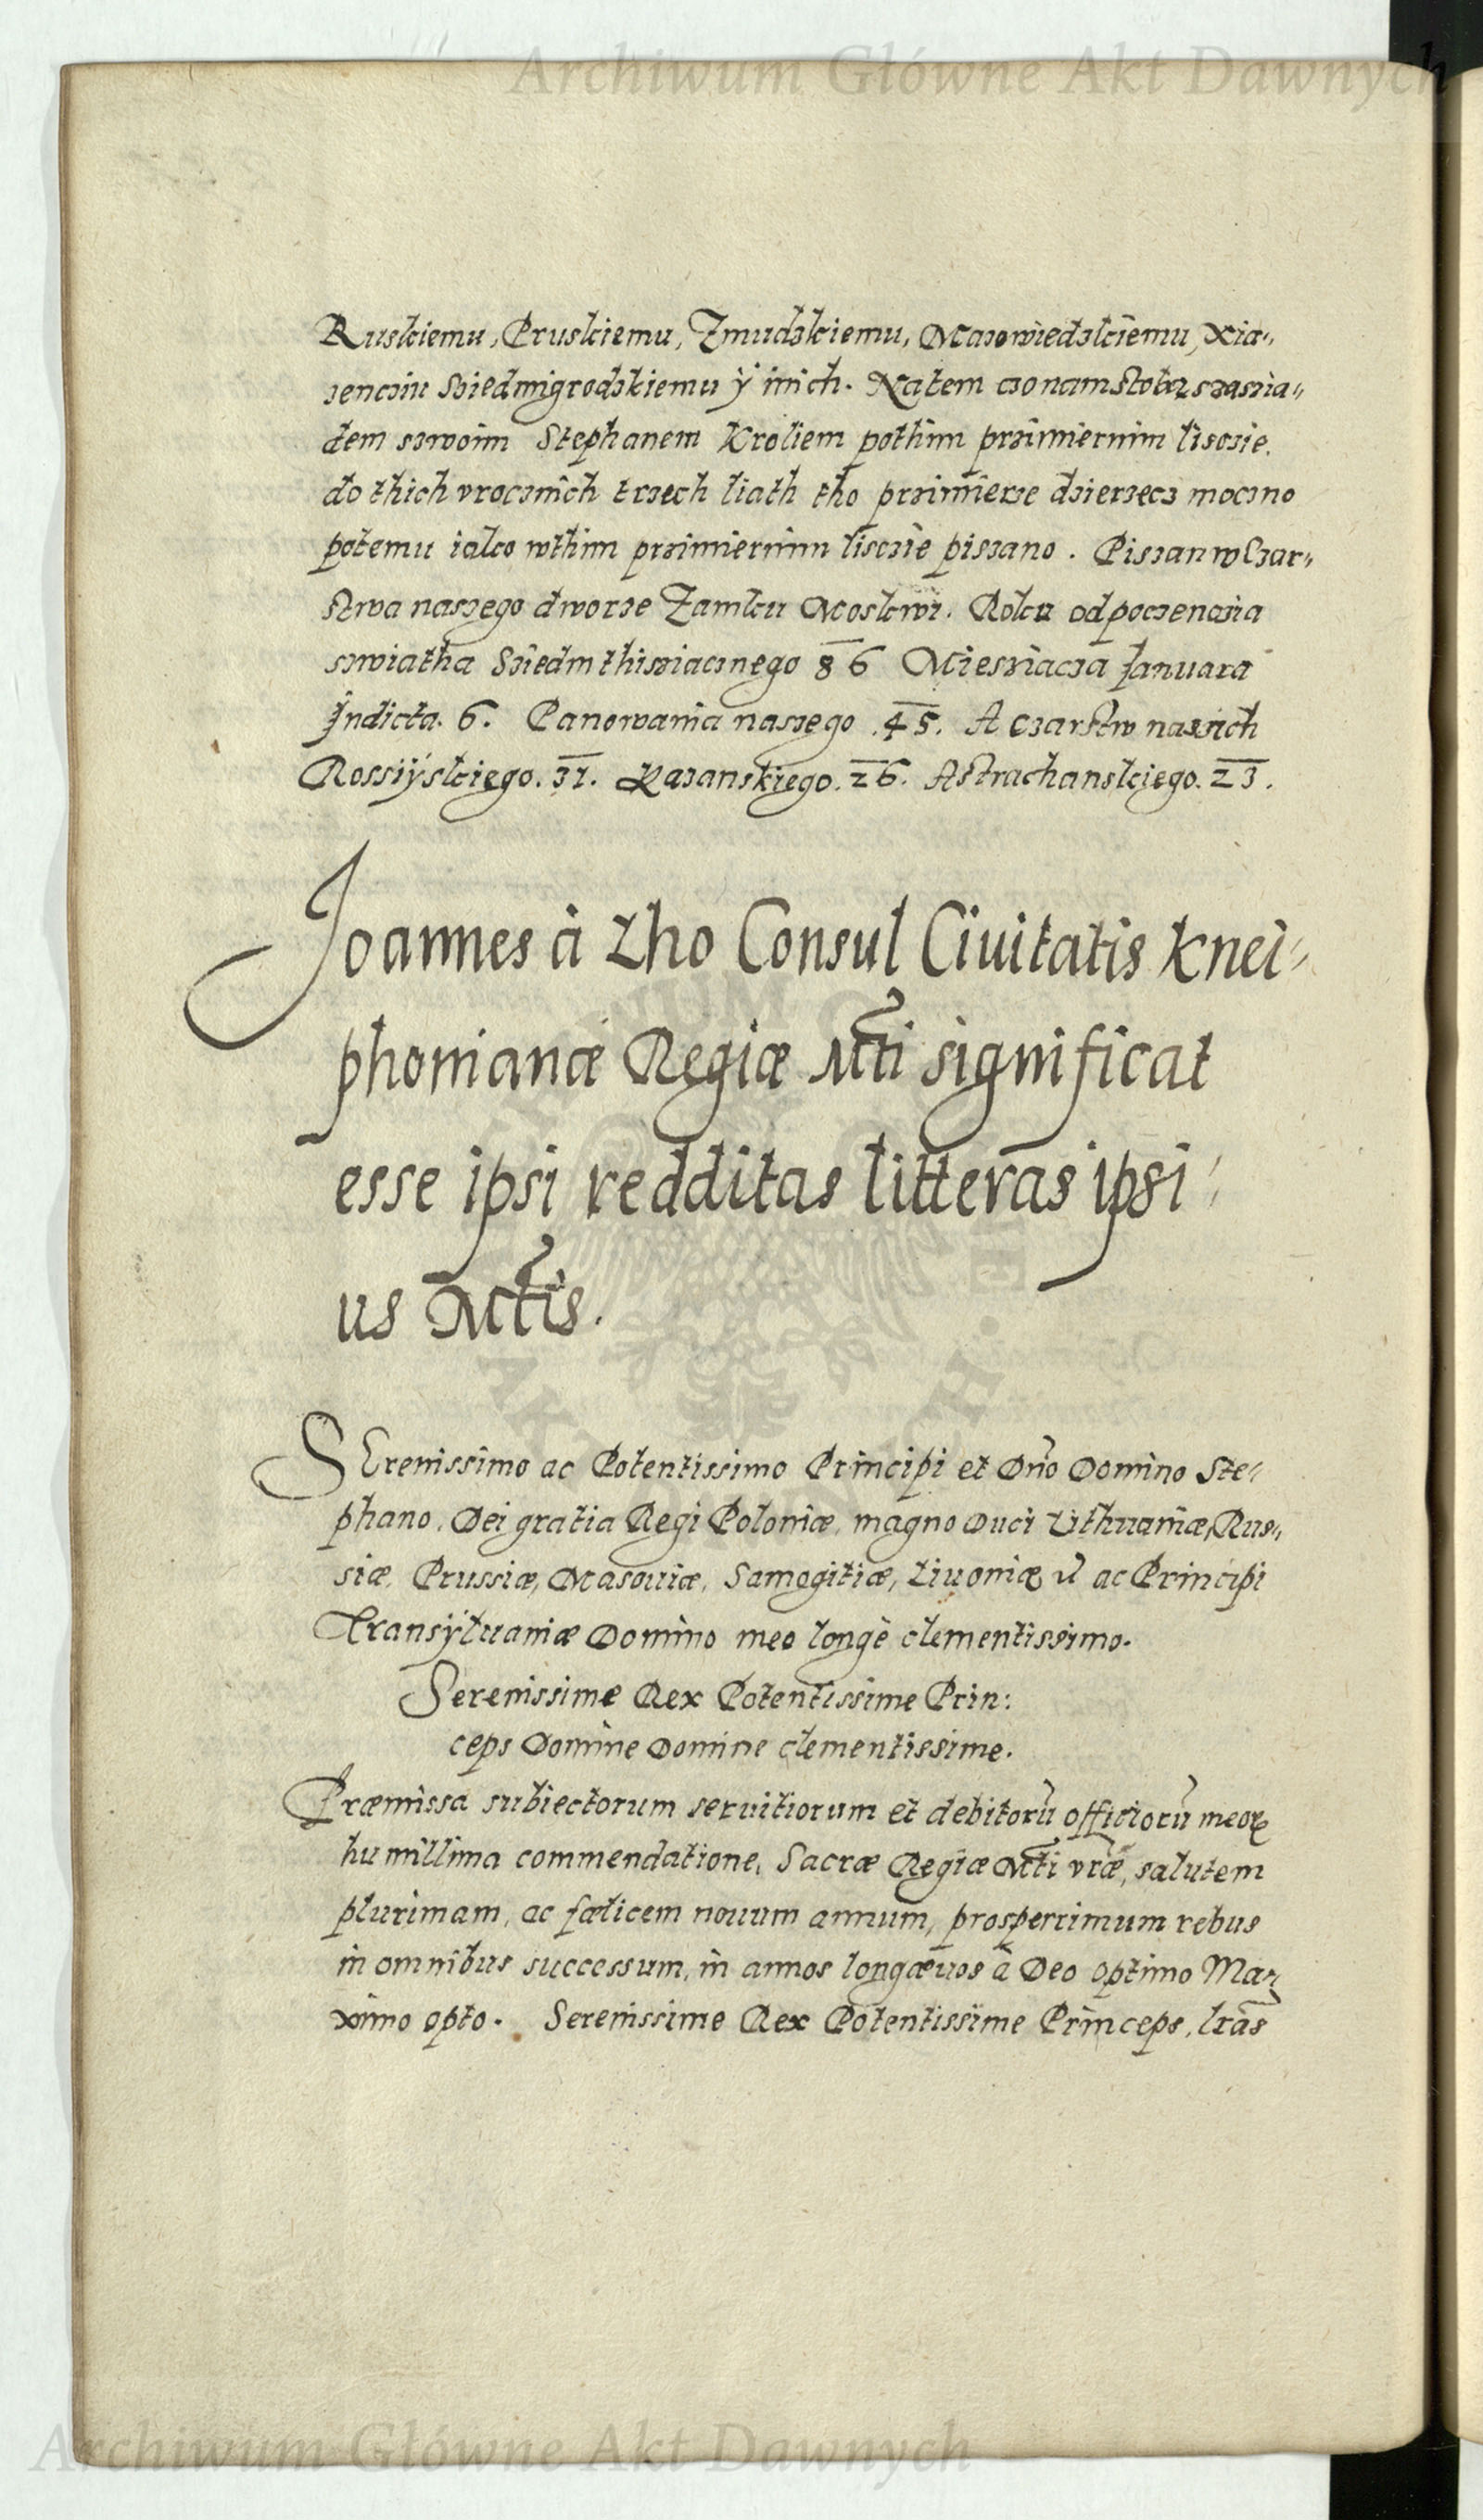 Archiwum Główne Akt Dawnych
Ruskiemu, Pruskiemu, Zmudzkiemu, Mazowiedzkiemu, Xia-
zencziu Sziedmigrodzkiemu ÿ inich. Natem czo nam stotu szaszia-
dem szwoim Stephanem Kroliem pothim przimiernim lisczie.
do thich vrocznich trzech liath tho przimierze dzierzecz moczno
potemu iako wthim przimiernim lisczie piszano. Piszan w Czar-
stwa naszego dworze Zamku Moskwi. Roku od poczenazia
szwiatha Sziedmthisziacznego 86 Miesziacza Januara
Jndicta. 6. Panowania naszego .45. A czarstw naszich
Rossiÿskiego. 31. Kazanskiego. 26. Astrachanskiego. 23.
Joannes à Zho Consul Ciuitatis Knei-
phonianæ Regiæ Mti significat
esse ipsi redditas litteras ipsi-
us Mtis.
SErenissimo ac Potentissimo Principi et Dno Domino Ste-
phano, Dei gratia Regi Poloniæ, magno Duci Lithuaniæ, Rus-
siæ, Prussiæ, Masouiæ, Samogitiæ, Liuoniæ ac Principi
Transÿluaniæ Domino meo longè clementissimo.
Serenissime Rex Potentissime Prin:
ceps Domine Domine clementissime.
Præmissa subiectorum seruitiorum et debitorũ officiorũ meoꝝ
humillima commendatione, Sacræ Regiæ Mti vræ, salutem
plurimam, ac fœlicem nouum annum, prosperrimum rebus
in omnibus successum, in annos longæuos à Deo optimo Ma-
ximo opto. Serenissime Rex Potentissime Princeps, lrãs
Archiwum Główne Akt Dawnych